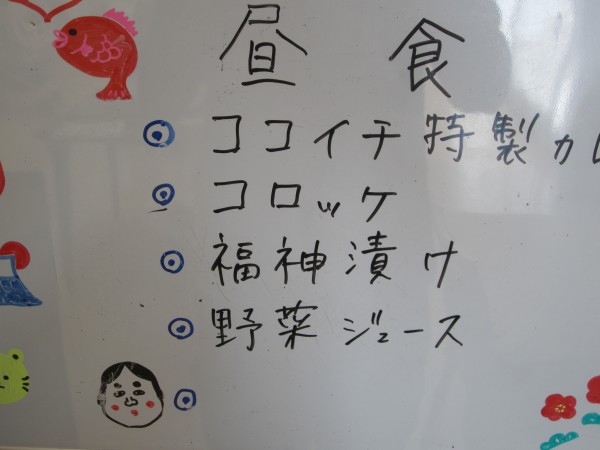 昼食
ココイチ特製カレ
コロッケ
福神漬け
野菜ジュース